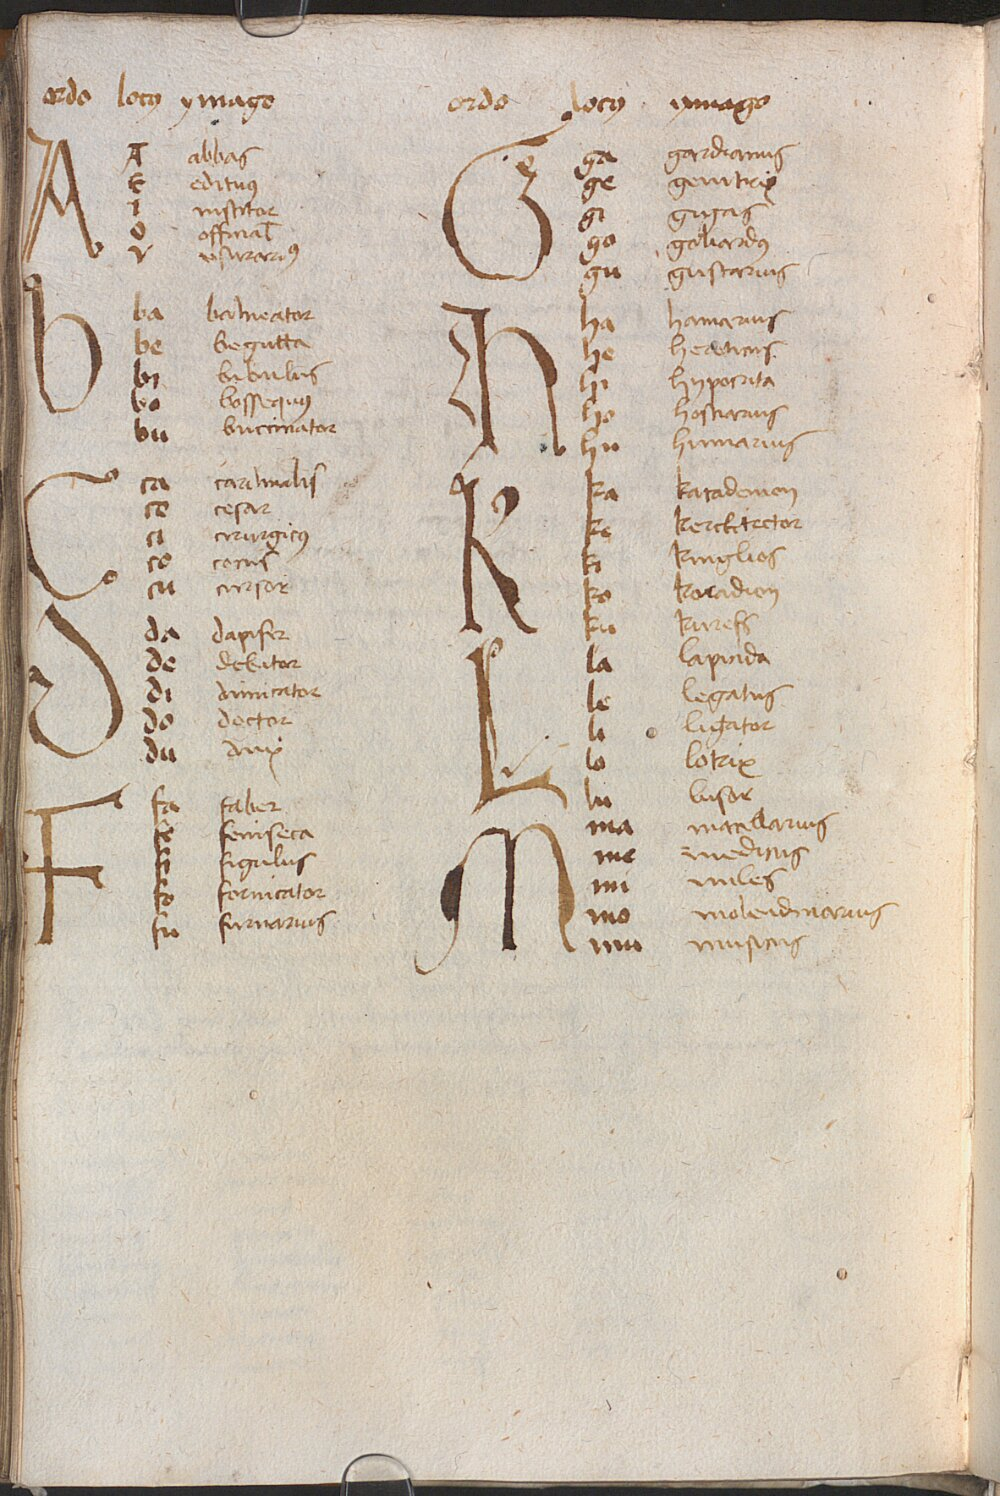 ordo locꝰ ymago
A
A abbas
E edituꝰ
I institor
O official
V vsurariꝰ
b
ba balneator
be begutta
bi bibulus
bo bossequꝰ
bu buccinator
C
ca cardinalis
ce cesar
ci cirurgicꝰ
co cocus
cu cursor
D
da dapifer
de debitor
di dimicator
do doctor
du dux
F
fa faber
fe feniseca
fi figulus
fo fornicator
fu furnarius
ordo locꝰ ymago
G
ga gardianus
ge genitrix
gi gigas
go goliardꝰ
gu gustarius
h
ha hamarius
he hereticus
hi hypocrita
ho hostiarius
hu humarius
K
ka katademon
ke
ki kinglios
ko koradion
ku kurefs
L
la lapicida
le legatus
li ligator
lo lotrix
lu lusor
M
ma macellarius
me medicus
mi miles
mo molendinarius
mu musicus